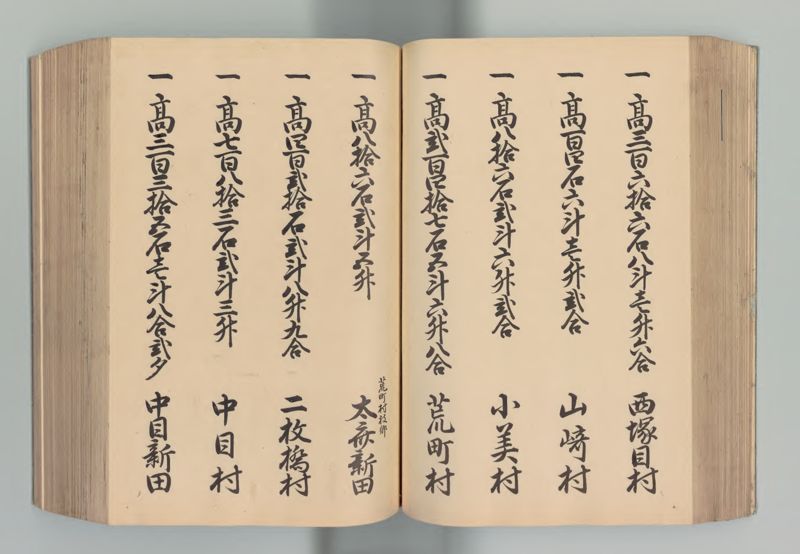 一 高三百六拾六石八斗壱升六合 西塚目村
一 高百四石六斗壱升弐合 山﨑村
一 高八拾六石弐斗六升弐合 小美村
一 高弐百四拾七石五斗六升八合 荒町村
一 高八拾六石弐斗五升 荒町村枝郷 太斎新田
一 高四百弐拾石弐斗八升九合 二枚橋村
一 高七百八拾三石弐斗三升 中目村
一 高三百三拾五石壱斗八合弐夕 中目新田